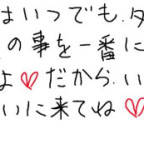 はいつでも、タ
の事を一番に
よ♥だから、い
いに来てね♥